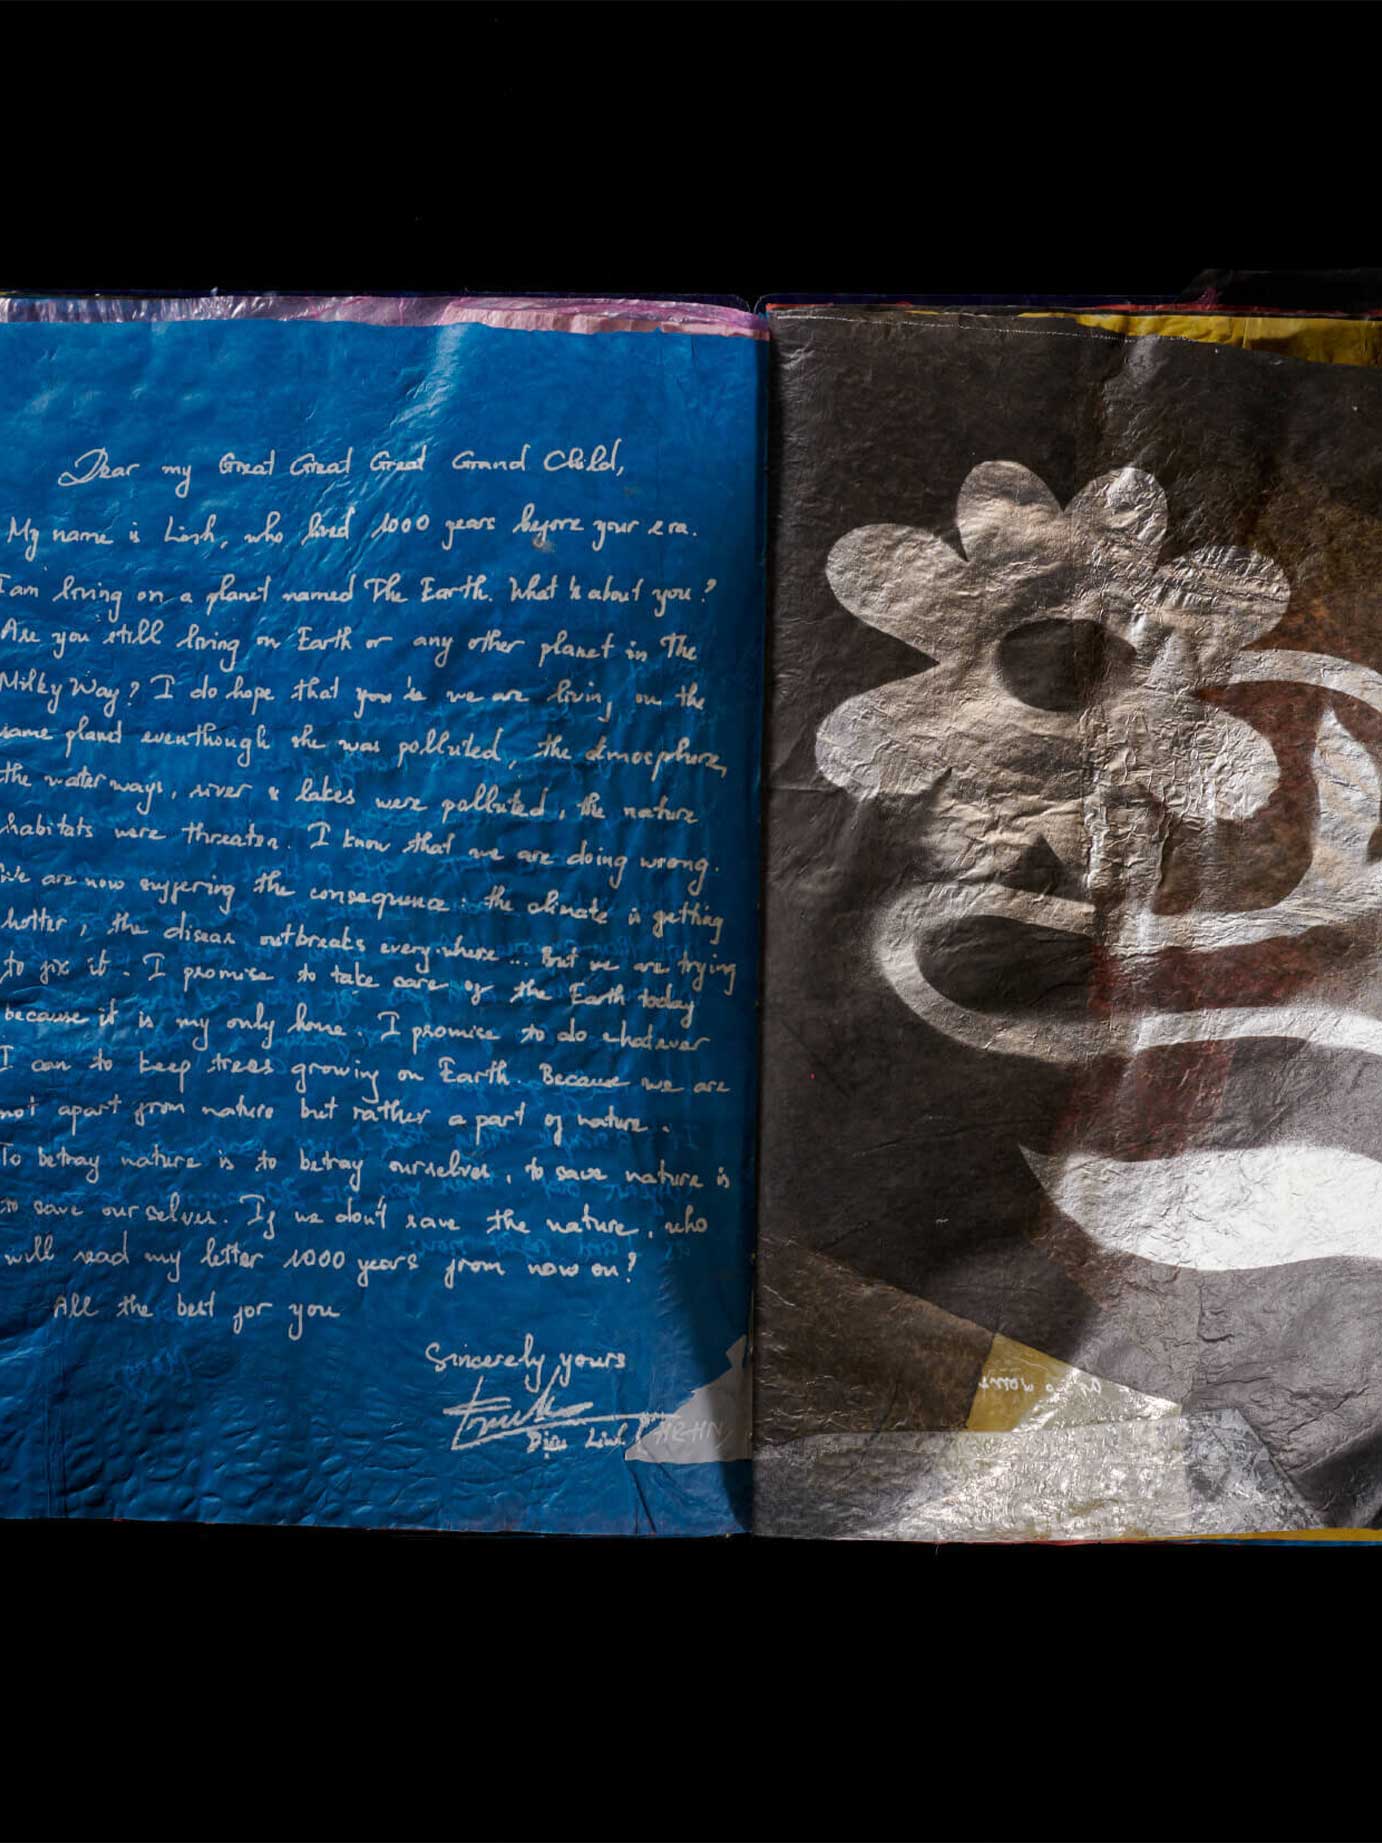 Dear my Great Great Great Grand Child,
My name is Linh, who lived 1000 years before your era.
I am living on a planet named The Earth. What is about you?
Are you still living on Earth or any other planet in The
Milky Way? I do hope that you is we are living on the
same planet eventhough she was polluted, the atmosphere,
the water ways, river & lakes were polluted, the nature
habitats were threaten. I know that we are doing wrong.
We are now suffering the consequence: the climate is getting
hotter, the diseas outbreaks everywhere... But we are trying
to fix it. I promise to take care of the Earth today
because it is my only home. I promise to do whatever
I can to keep trees growing on Earth. Because we are
not apart from nature but rather a part of nature.
To betray nature is to betray ourselves, to save nature is
to save our selves. If we don't save the nature, who
will read my letter 1000 years from now on?
All the best for you
Sincerely yours
Dieu Linh